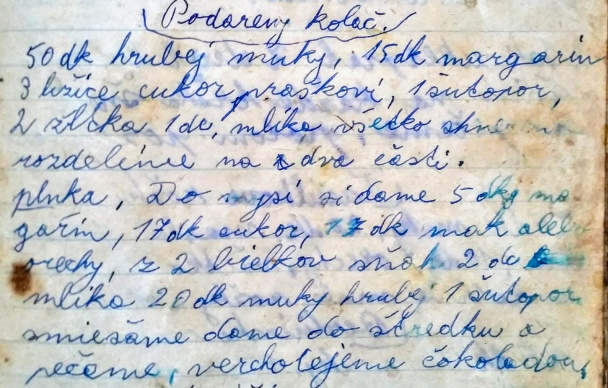 Podareny koláč.
50dk hrubej muky, 15dk margarin
3 lžíce cukor práškoví, 1 šutopor,
2 žĺtka 1dc, mlíka všecko
rozdelíme na dva časti.
plnka, Do misi si dame 5 dkg ma
garín, 17dk cukor, 17dk mak alebo
orechy, z 2 bielkov sňoh 2 dc
mlíka 20dk muky hrubej 1 šutopor
smiešame dame do stredku a
pečäme, verch olejeme čokoladou,